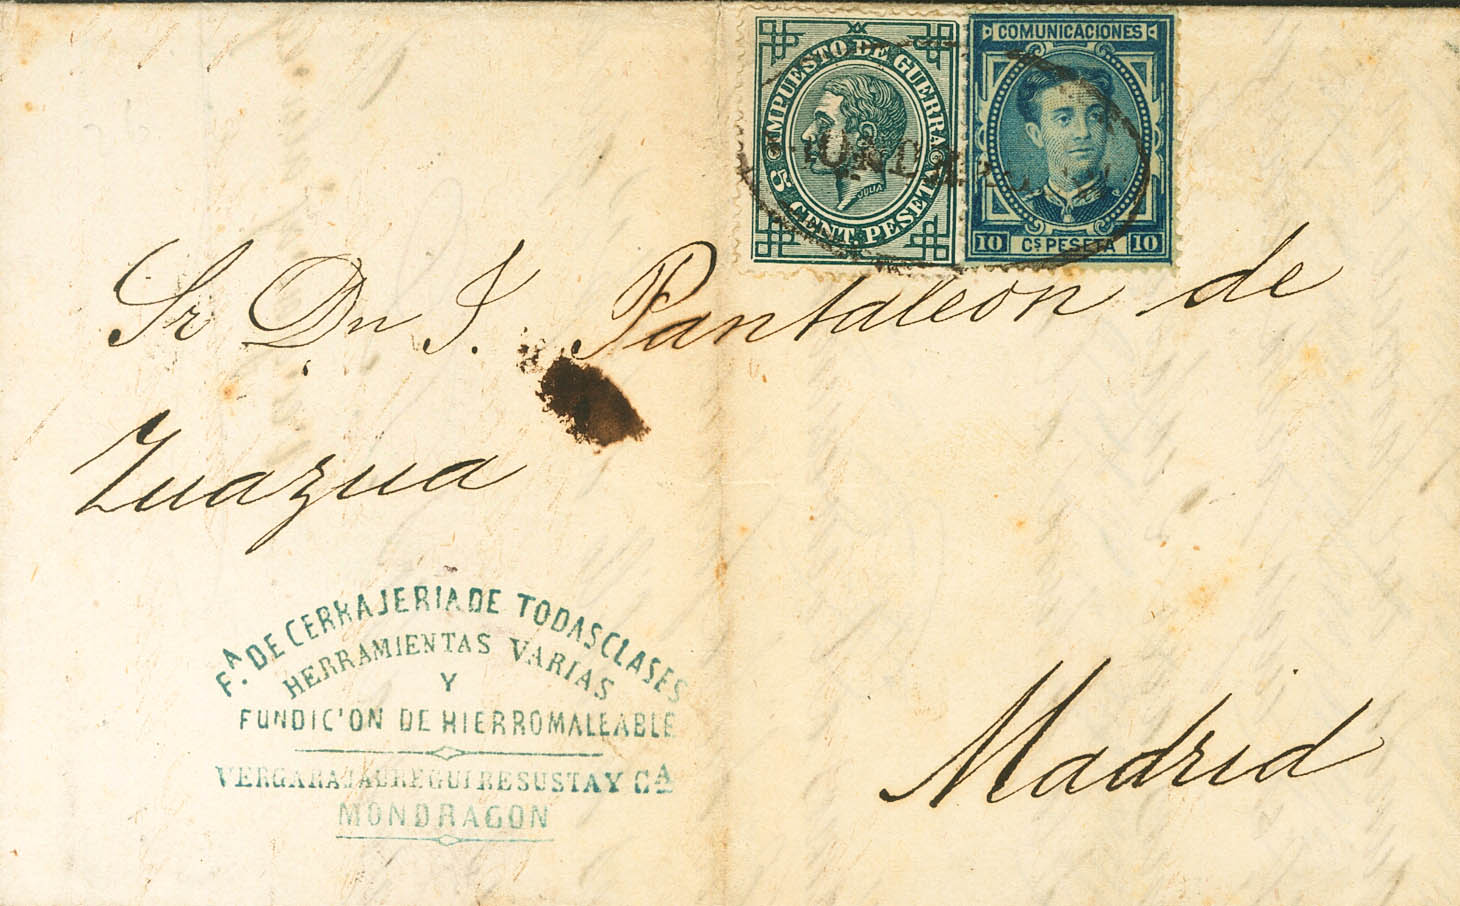 COMUNICACIONES
IMPUESTO DE GUERRA
5 CENT. PESETA
JULIA
10 Cs PESETA 10
Sr Dn J. Pantaleon de
Zuazua
Madrid
Fa. DE CERRAJERIA DE TODAS CLASES
HERRAMIENTAS VARIAS
Y
FUNDICION DE HIERRO MALEABLE
VERGARAJAUREGUI RESUSTA Y CA
MONDRAGON